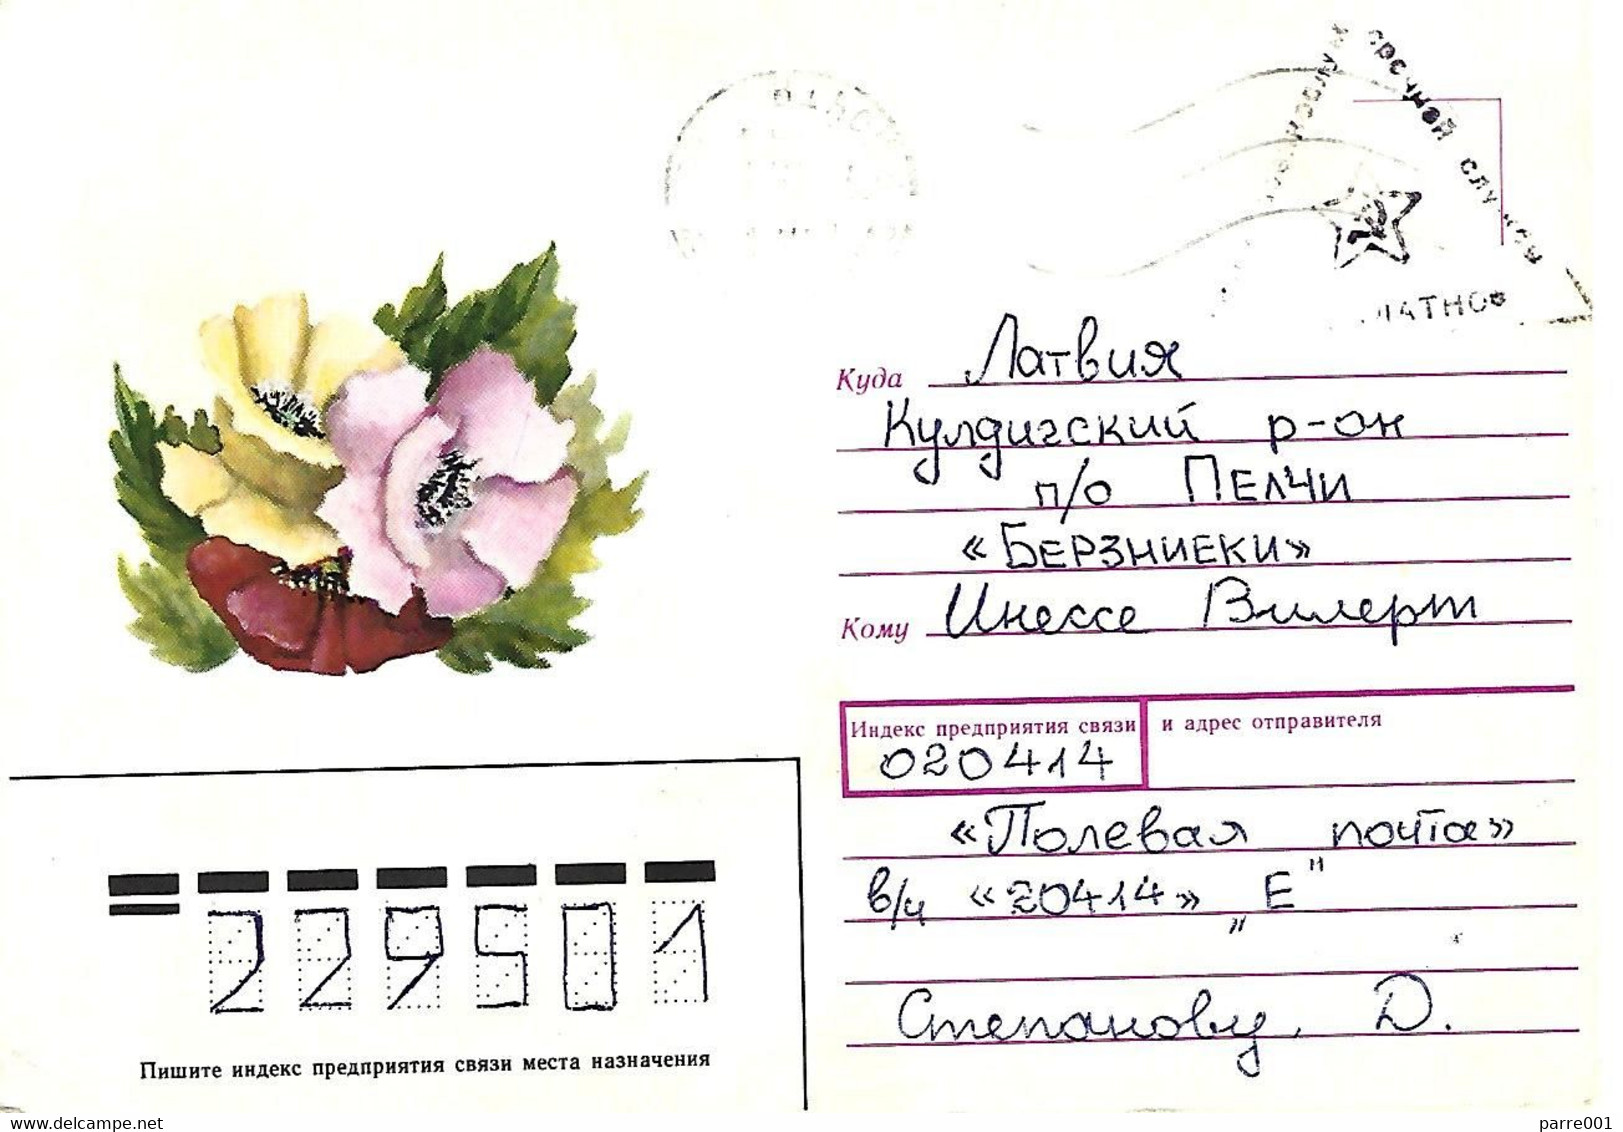 срочной службы
Куда Латвия
Кулдигский р-он
п/о ПЕЛЧИ
«БЕРЗНИЕКИ»
Кому Инессе Вилерт
Индекс предприятия связи и адрес отправителя
020414
«Полевая почта»
в/ч «20414» „Е"
Степанову Д.
229501
Пишите индекс предприятия связи места назначения
delcampe.net
parre001